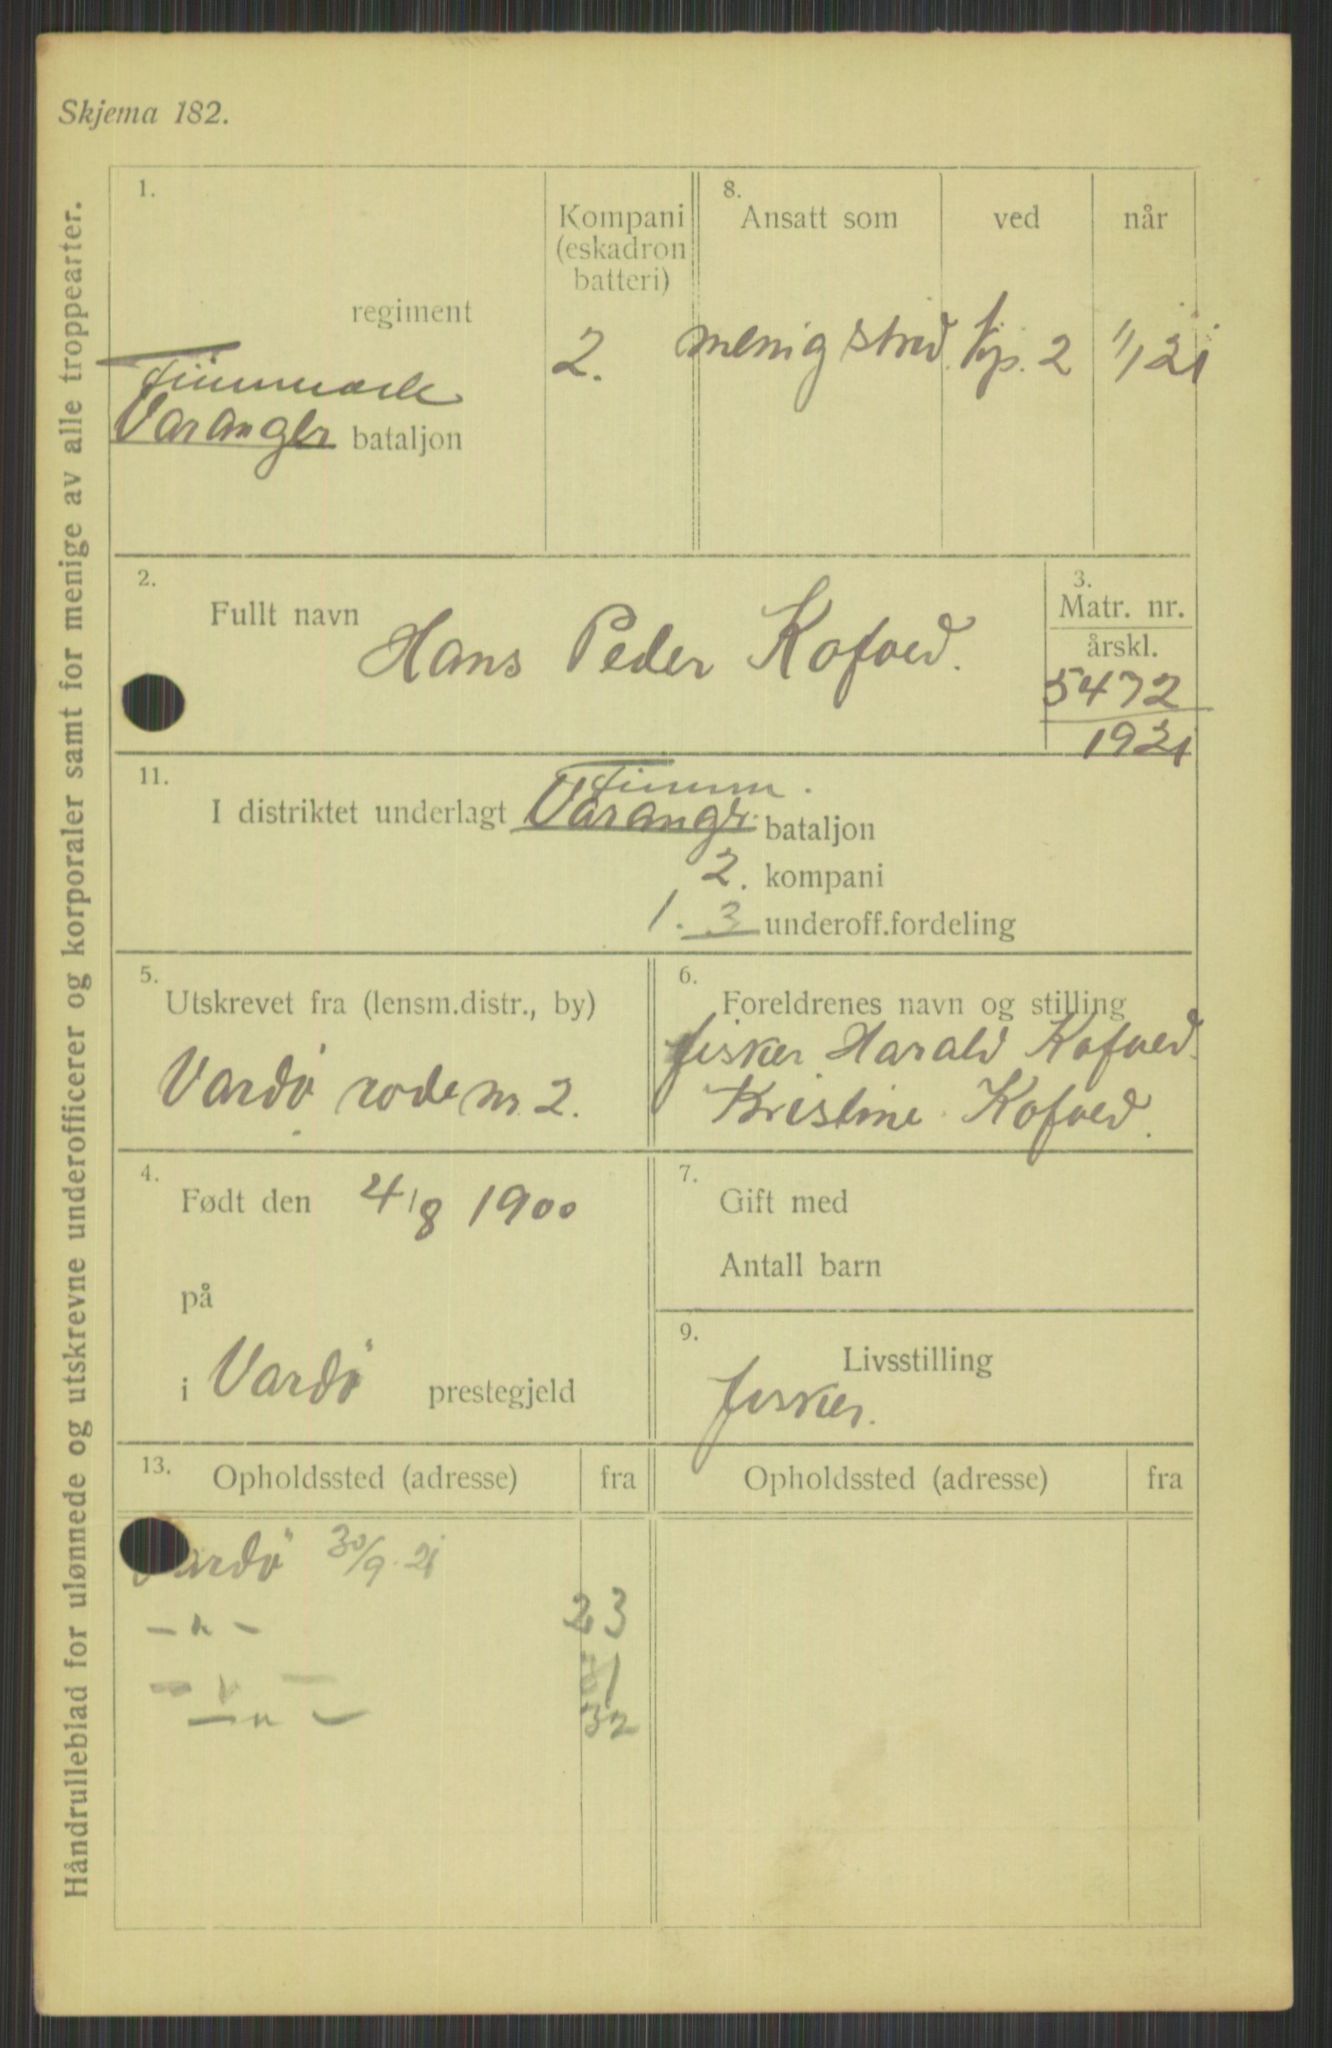 Skjema 182.
Håndrulleblad for ulønnede og utskrevne underofficerer og korporaler samt for menige av alle troppearter.
1.
regiment
Finnmark
Varanger bataljon
Kompani
(eskadron
batteri)
2.
8.
Ansatt som
ved
når
menig strid. kp. 2 1/1 21
2.
Fullt navn
Hans Peder Kofoed.
3.
Matr. nr.
årskl.
5472
1921
11.
Finnm.
I distriktet underlagt Varangr. bataljon
2. kompani
1. 3 underoff.fordeling
5.
Utskrevet fra (lensm.distr., by)
Vardö rode nr 2.
6.
Foreldrenes navn og stilling
fisker Harald Kofoed.
Kristine Kofoed.
4.
Født den 4/8 1900
på
i Vardö prestegjeld
7.
Gift med
Antall barn
9.
Livsstilling
fisker.
13.
Opholdssted (adresse) fra
Opholdssted (adresse) fra
Vardö 30/9.21
— " — 23
— " — 31
— " — 32